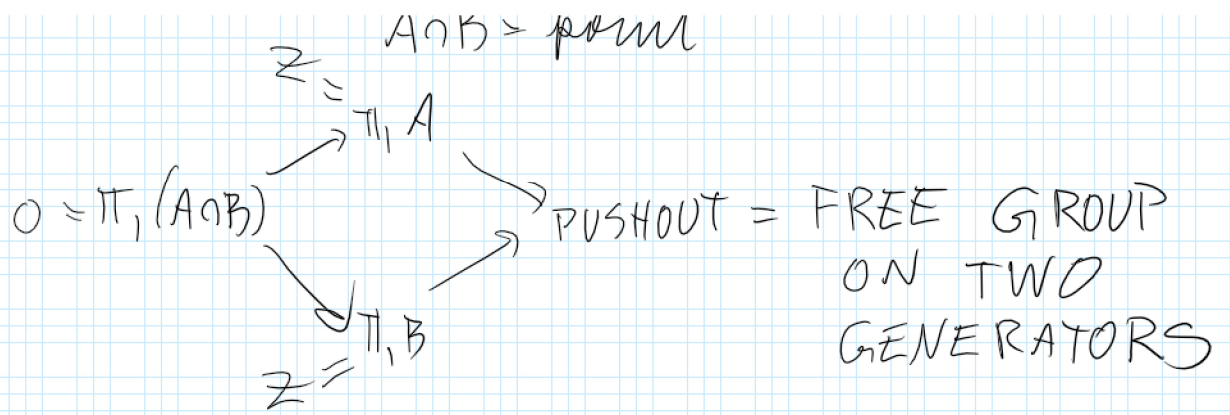 A∩B = point
Z
=
π₁ A
0 = π₁(A∩B)
PUSHOUT = FREE GROUP
ON TWO
GENERATORS
π₁B
Z =